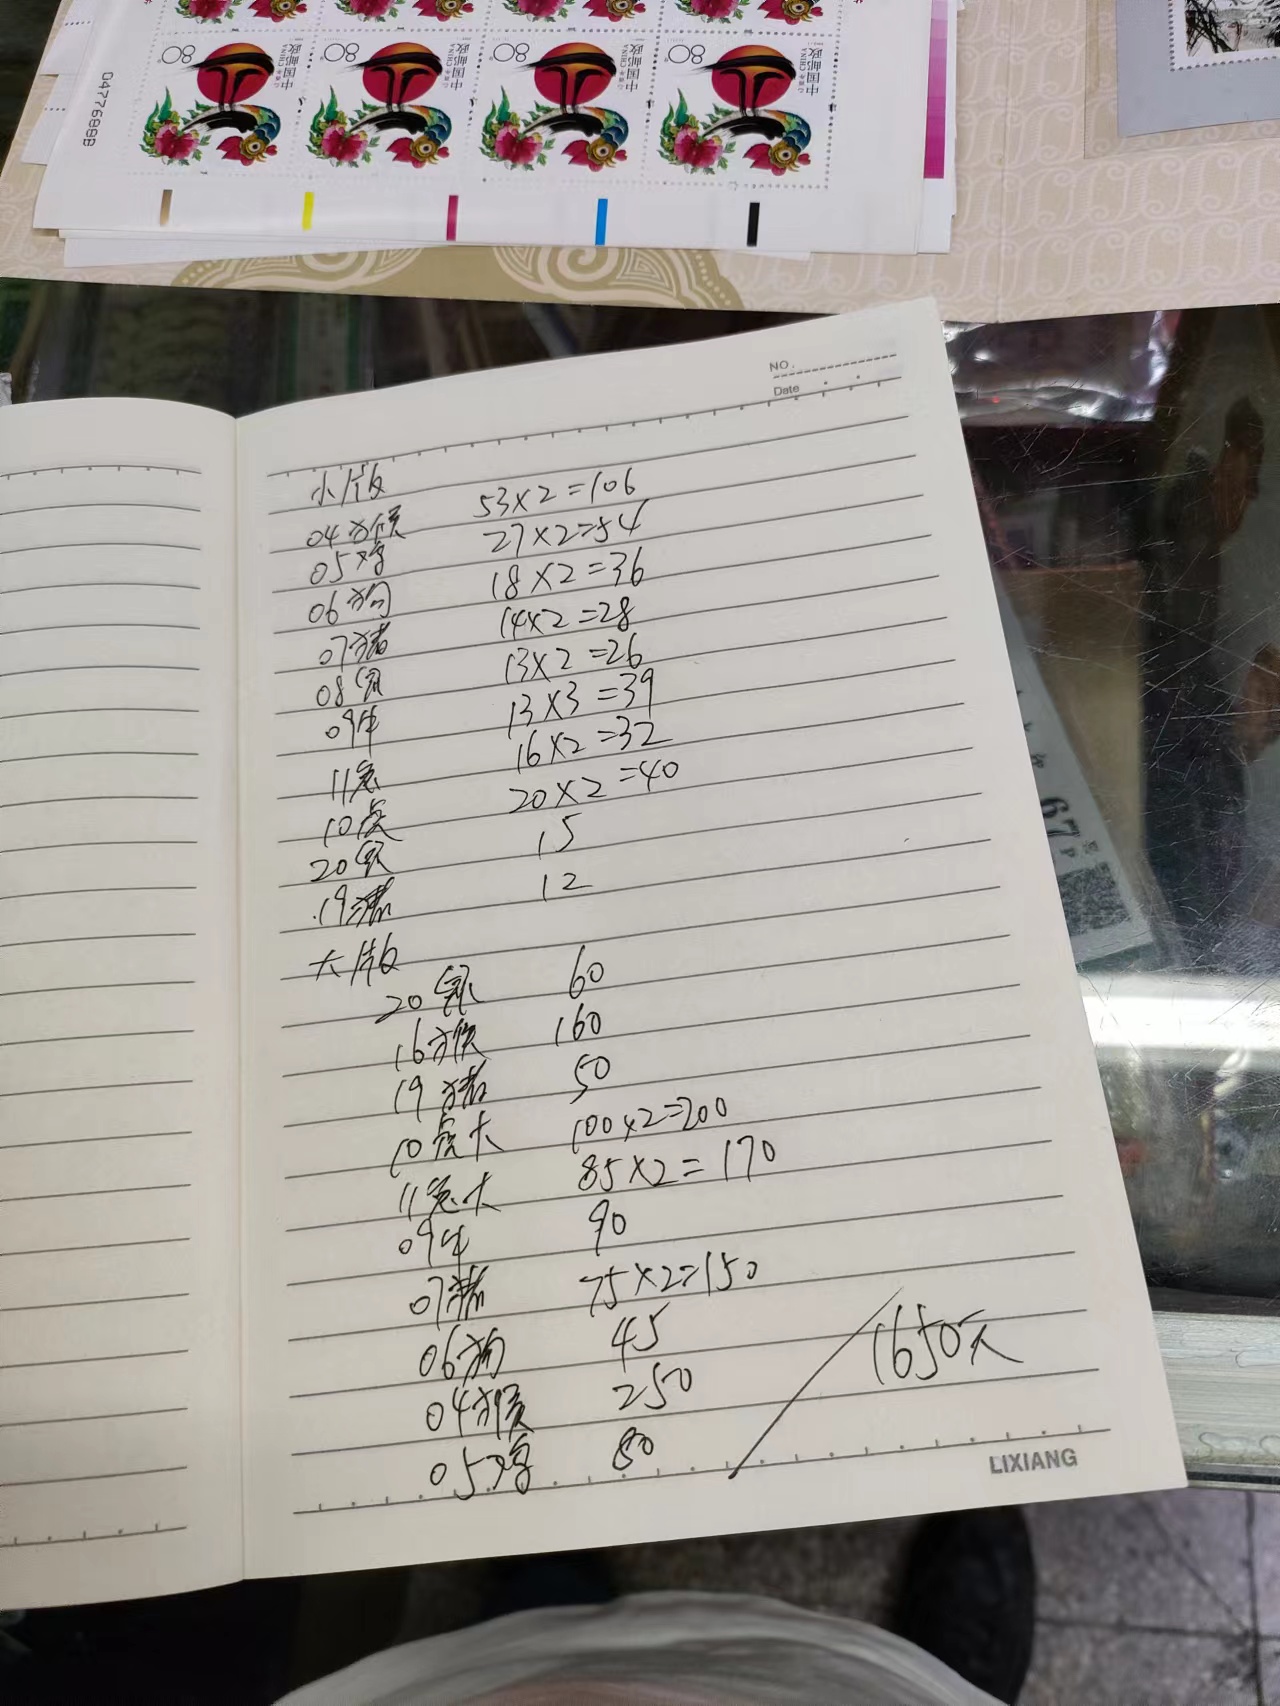 80 中国邮政 CHINA
80 中国邮政 CHINA
80 中国邮政 CHINA
80 中国邮政 CHINA
0477688B
NO.
Date
小版
04猴 53×2=106
05鸡 27×2=54
06狗 18×2=36
07猪 14×2=28
08鼠 13×2=26
09牛 13×3=39
11兔 16×2=32
10虎 20×2=40
20鼠 15
19猪 12
大版
20鼠 60
16猴 160
19猪 50
10虎大 100×2=200
11兔大 85×2=170
09牛 90
07猪 75×2=150
06狗 45
04猴 250
05鸡 80
1650元
LIXIANG
67